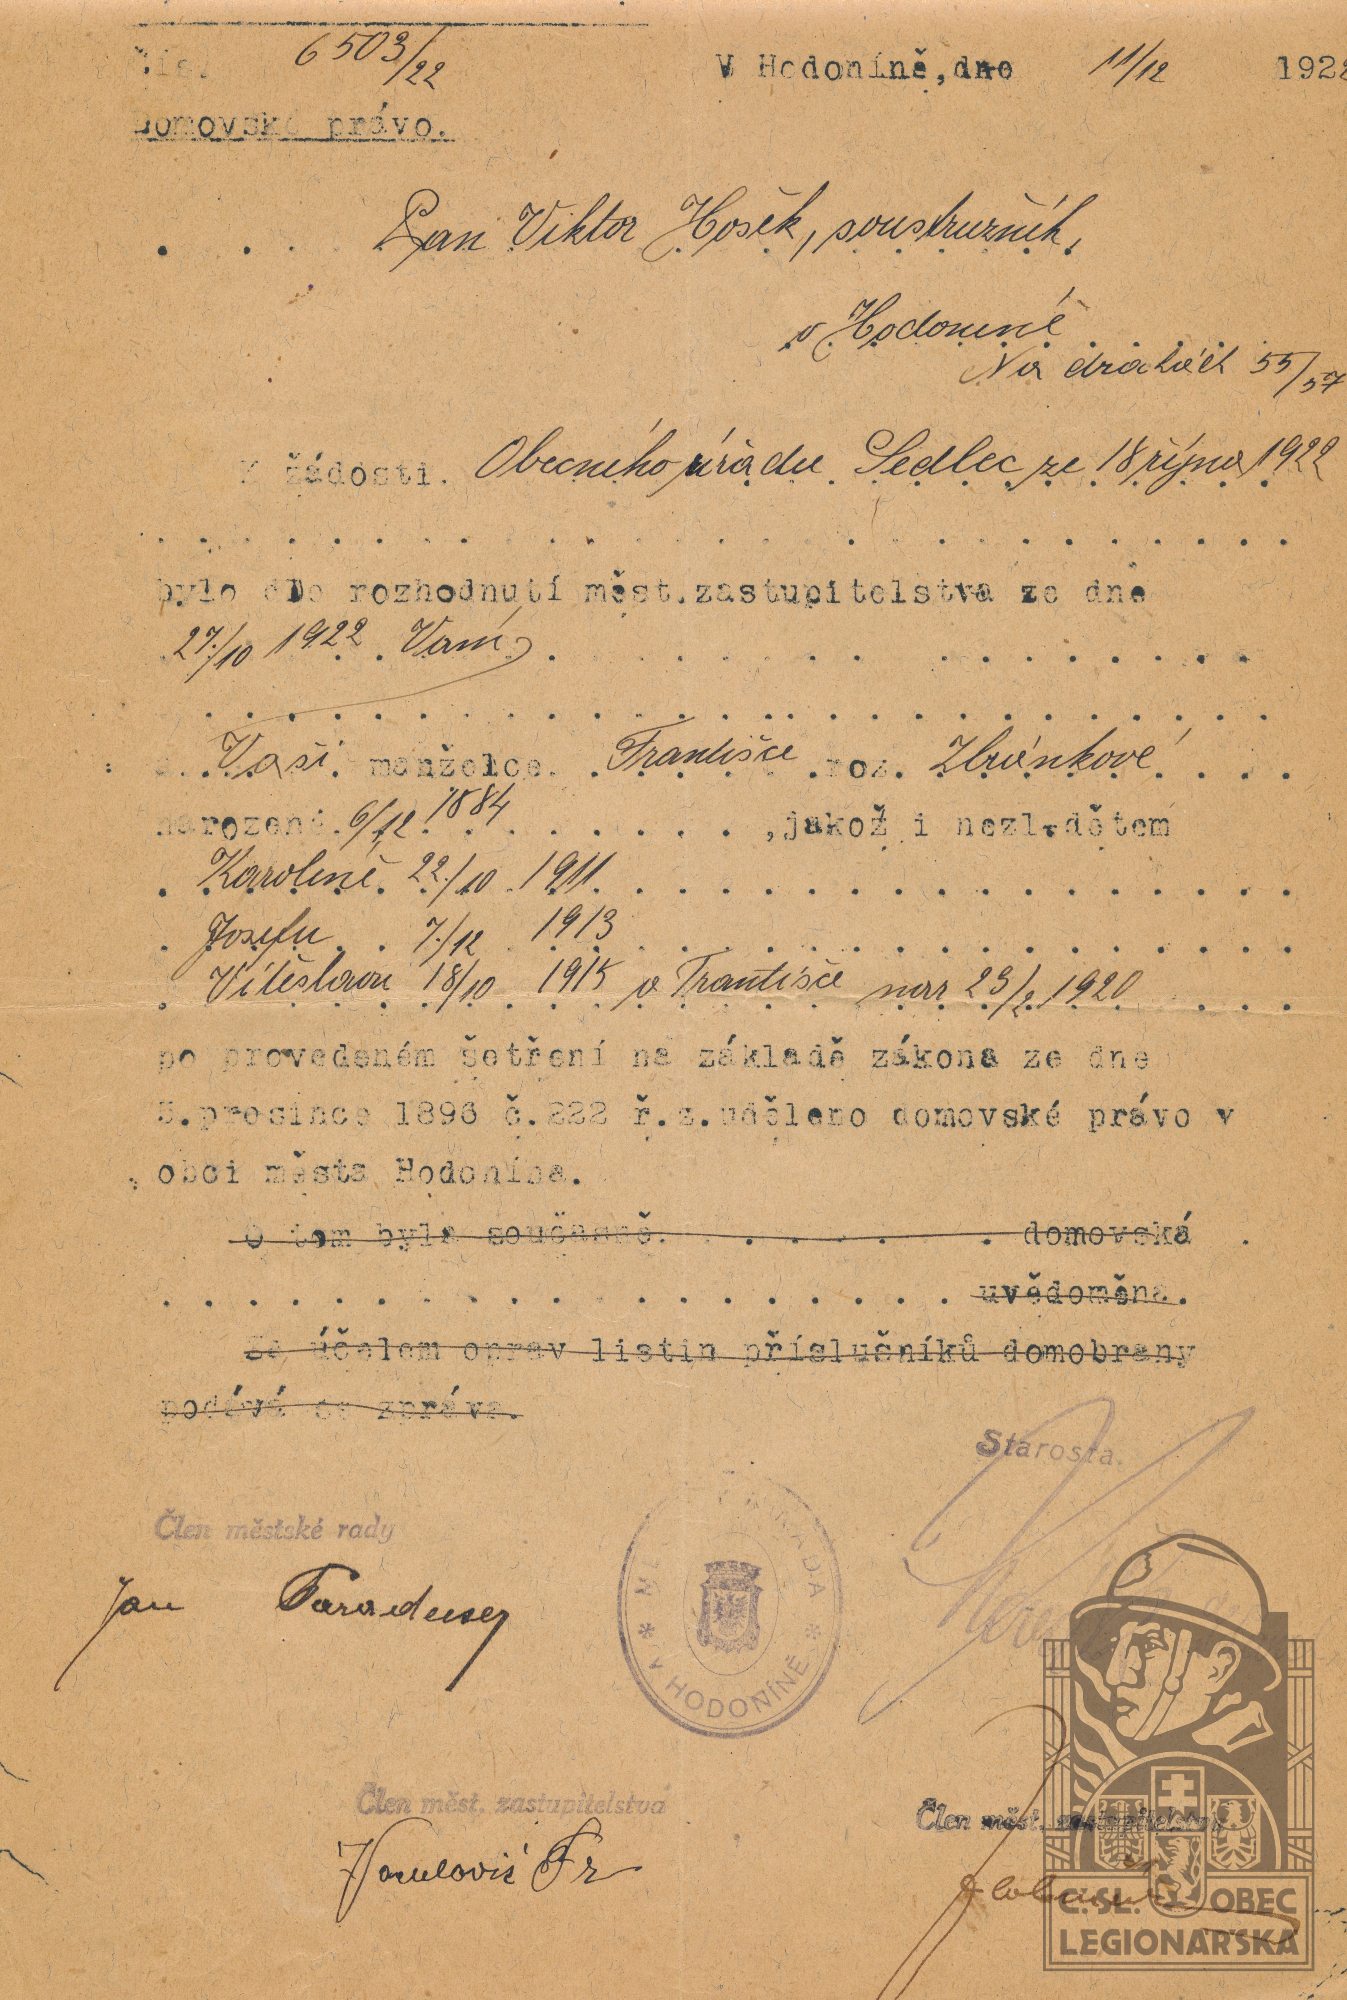 Čís. 6503/22 V Hodoníně, dne 11/12 1922
Domovské právo.
Pan Viktor Hošek, soustružník,
v Hodoníně
Na drahách 55/57
K žádosti. Obecního úřadu Sedlec ze 18 října 1922
bylo dle rozhodnutí měst.zastupitelstva ze dne
27./10 1922 Vám,
a Vaší manželce. Františce roz. Zbránkové
narozené 6/12 1884 ,jakož i nezl.dětem
Karolině 22./10 1911
Josefu 7./12 1913
Vítěslavu 18/10 1915 a Františce nar 23/2 1920
po provedeném šetření na základě zákona ze dne
5.prosince 1896 č.222 ř.z.uděleno domovské právo v
obci města Hodonína.
O tom byla současně. domovská
uvědoměna.
Za účelem oprav listin příslušníků domobrany
podává se zpráva.
Starosta.
Člen městské rady
Jan
MĚSTSKÁ RADA * V HODONÍNĚ *
Člen měst. zastupitelstva
Člen měst. zastupitelstva
Fr
Č.SL. OBEC
LEGIONÁŘSKÁ